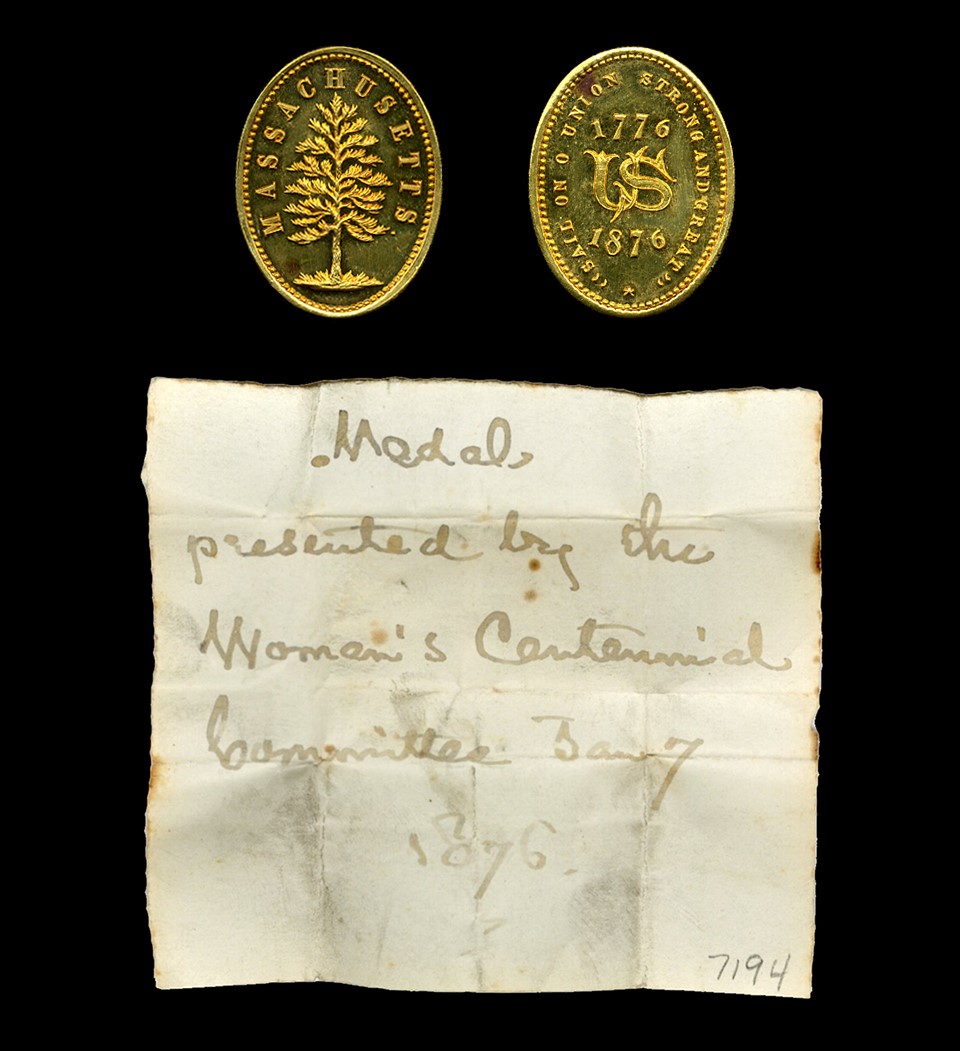 MASSACHUSETTS
"SAIL ON O UNION STRONG AND GREAT"
1776
US
1876
Medal
presented by the
Woman's Centennial
Committee Jan 7
1876.
7194